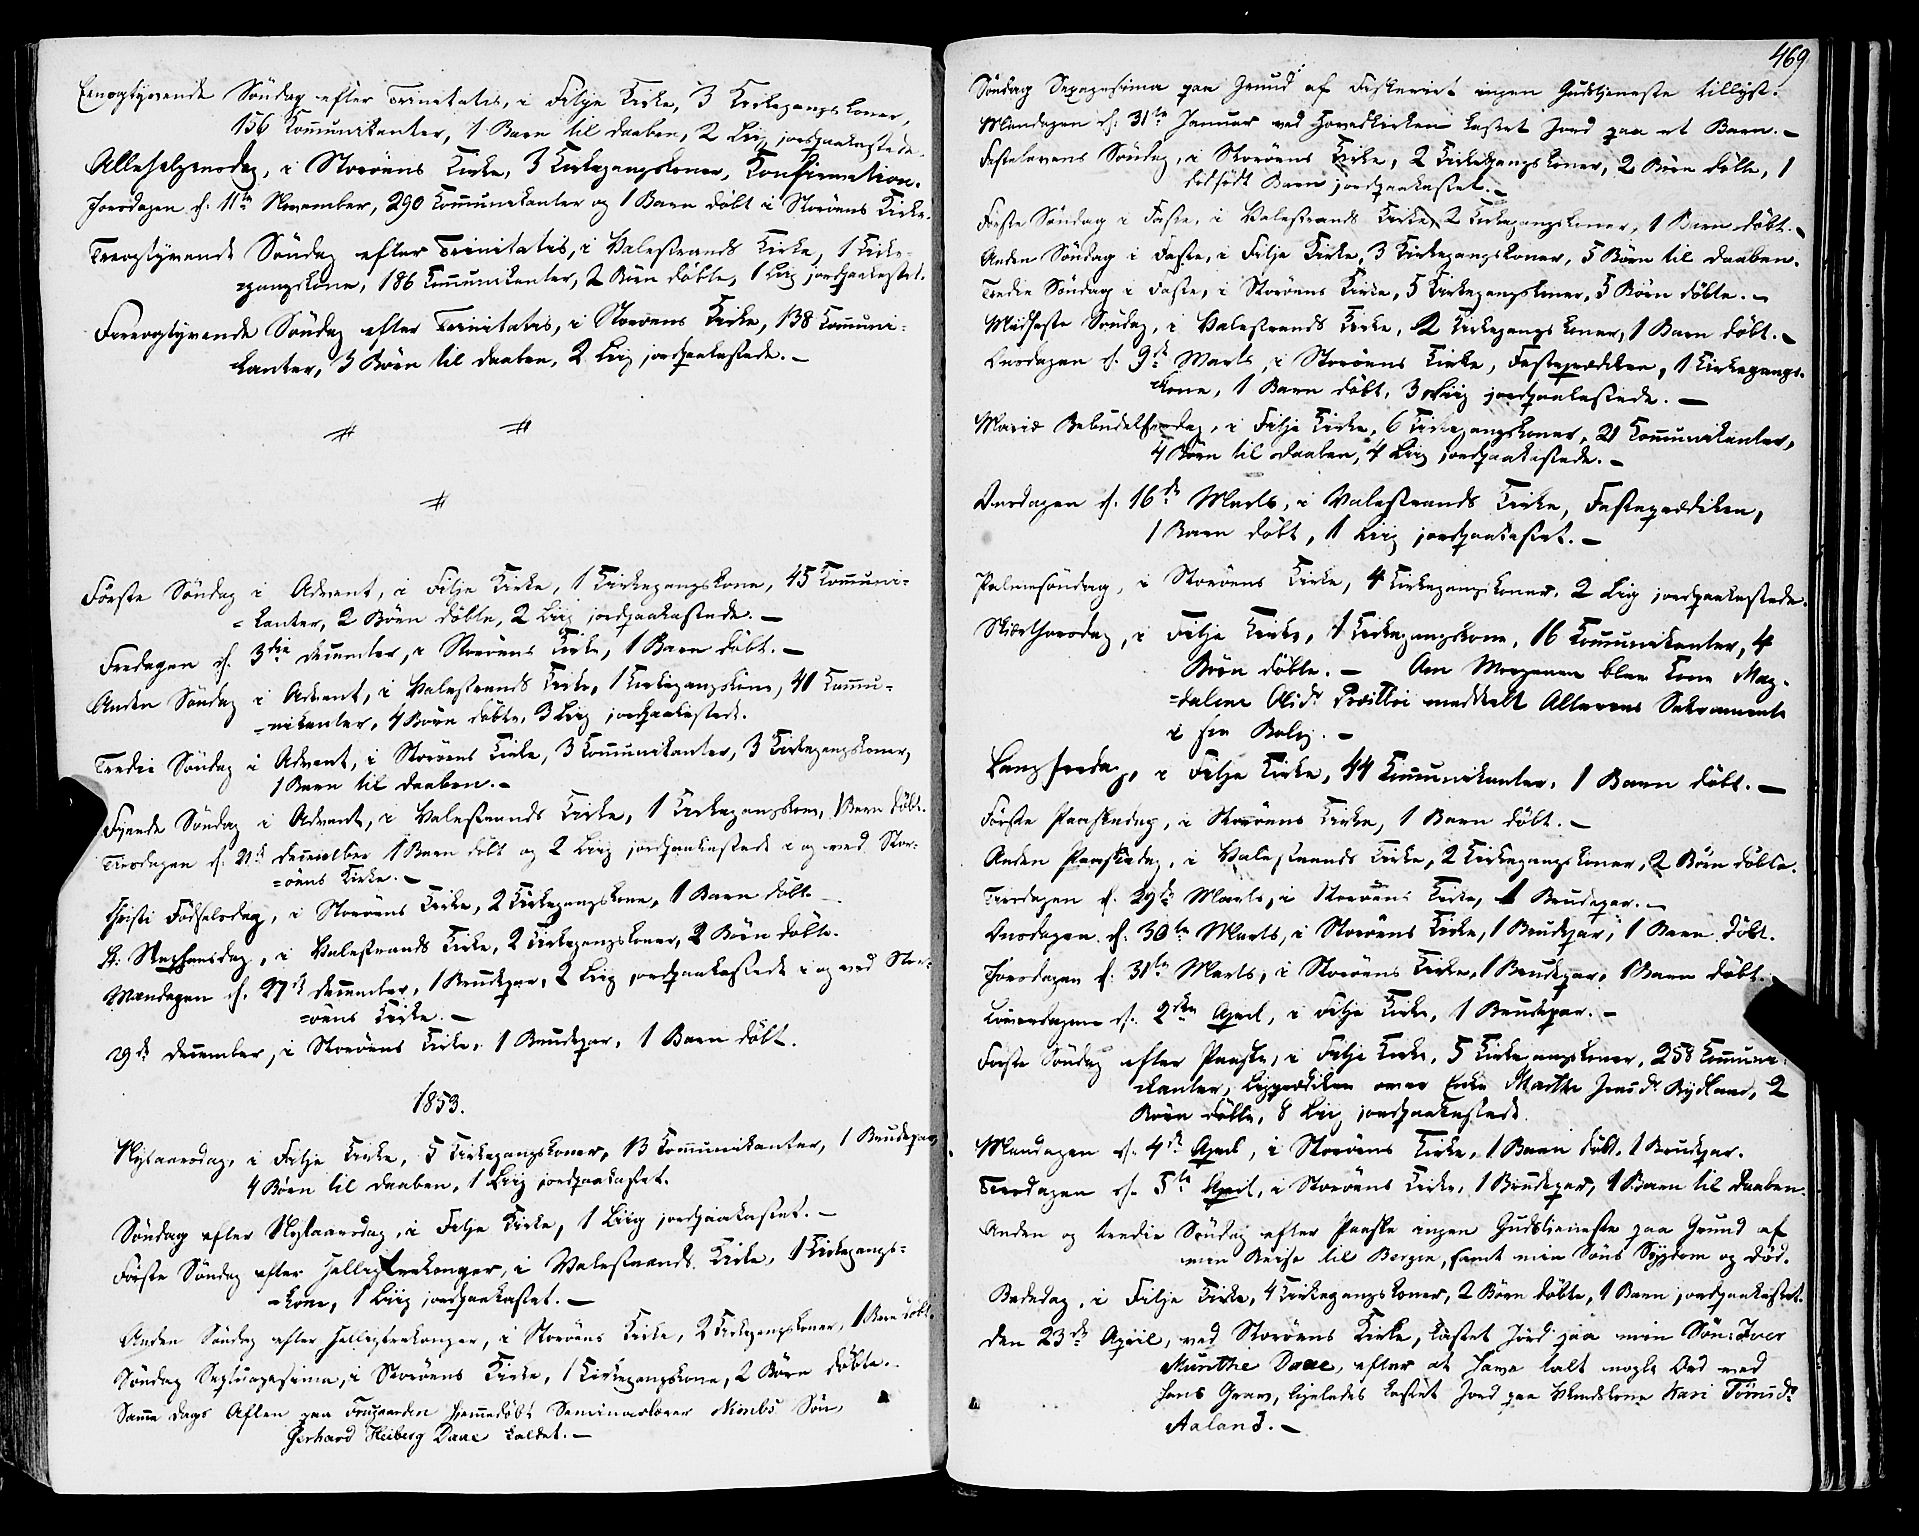 Eenogtyvende Søndag efter Trinitatis, i Fitje Kirke, 3 Kirkegangskoner,
156 Kommunikanter, 1 Barn til daaben, 2 Liig jordpaakastede.
Allehelgensdag, i Storøens Kirke, 3 Kirkegangskoner, Konfirmation.
Torsdagen d. 11te November, 290 Kommunikanter og 1 Barn døbt i Storøens Kirke.
Treogtyvende Søndag efter Trinitatis, i Valestrands Kirke, 1 Kirke-
=gangskone, 186 Kommunikanter, 2 Børn døbte, 1 Liig jordpaakastet.
Fireogtyvende Søndag efter Trinitatis, i Storøens Kirke, 138 Kommuni-
kanter, 3 Børn til daaben, 2 Liig jordpaakastede. —
Første Søndag i Advent, i Fitje Kirke, 1 Kirkegangskone, 45 Kommuni=
=kanter, 2 Børn døbte, 2 Liig jordpaakastede. —
Fredagen d. 3die december, i Storøens Kirke, 1 Barn døbt. —
Anden Søndag i Advent, i Valestrands Kirke, 1 Kirkegangskone, 41 Kommu=
=nikanter, 4 Børn døbte, 3 Liig jordpaakastede.
Tredie Søndag i Advent, i Storøens Kirke, 3 Kommunikanter, 3 Kirkegangskoner,
1 Barn til daaben. —
Fjerde Søndag i Advent, i Valestrands Kirke, 1 Kirkegangskone, 1 Barn døbt.
Tirsdagen d. 21de december 1 Barn døbt og 2 Liig jordpaakastede i og ved Stor=
=øens Kirke. —
Christi Fødselsdag, i Storøens Kirke, 2 Kirkegangskone, 1 Barn døbt —
St: Stephansdag, i Valestrands Kirke, 2 Kirkegangskoner, 2 Børn døbte.
Mandagen d. 27de december, 1 Brudepar, 2 Liig jordpaakastede i og ved Stor=
=øens Kirke. —
29de december, i Storøens Kirke, 1 Brudepar, 1 Barn døbt.
1853.
Nytaarsdag, i Fitje Kirke, 5 Kirkegangskoner, 13 Kommunikanter, 1 Brudepar,
4 Børn til daaben, 1 Liig jordpaakastet.
Søndag efter Nytaarsdag, i Fitje Kirke, 1 Liig jordpaakastet. —
Første Søndag efter Helligtrekonger, i Valestrands Kirke, 1 Kirkegangs=
=kone, 1 Liig jordpaakastet. —
Anden Søndag efter Helligtrekonger, i Storøens Kirke, 2 Kirkegangskoner, 1 Barn døbt.
Søndag Septuagesima, i Storøens Kirke, 1 Kirkegangskone, 2 Børn døbte. —
Samme dags Aften paa hjemmedøbt Seminarlærer Søn,
Gerhard Heiberg Daae kaldet. —
469
Søndag Sexagesima paa Grund af Fiskeriet ingen Gudstjeneste tillyst.
Mandagen d. 31te Januar ved Hovedkirken kastet Jord paa et Barn. —
Fastelavens Søndag, i Storøens Kirke, 2 Kirkegangskoner, 2 Børn døbte, 1
dødfødt Barn jordpaakastet. —
Første Søndag i Faste, i Valestrands Kirke, 2 Kirkegangskoner, 1 Barn døbt. —
Anden Søndag i Faste, i Fitje Kirke, 3 Kirkegangskoner, 5 Børn til daaben.
Tredie Søndag i Faste, i Storøens Kirke, 5 Kirkegangskoner, 5 Børn døbte. —
Midfaste Søndag, i Valestrands Kirke, 2 Kirkegangskoner, 1 Barn døbt. —
Onsdagen d. 9de Marts, i Storøens Kirke, Fasteprædiken, 1 Kirkegangs-
kone, 1 Barn døbt, 3 Liig jordpaakastede. —
Mariæ Bebudelsesdag, i Fitje Kirke, 6 Kirkegangskoner, 21 Kommunikanter,
4 Børn til daaben, 4 Liig jordpaakastede. —
Onsdagen d. 16de Marts, i Valestrands Kirke, Fasteprædiken,
1 Barn døbt, 1 Liig jordpaakastet. —
Palmesøndag, i Storøens Kirke, 4 Kirkegangskoner, 2 Liig jordpaakastede.
Skiærthorsdag, i Fitje Kirke, 1 Kirkegangskone, 16 Kommunikanter, 4
Børn døbte. — Om Morgenen blev Kone Mag-
=dalene meddeelt Alterens Sakramente
i sin Bolig. —
Langfredag, i Fitje Kirke, 44 Kommunikanter, 1 Barn døbt. —
Første Paaskedag, i Storøens Kirke, 1 Barn døbt. —
Anden Paaskedag, i Valestrands Kirke, 2 Kirkegangskoner, 2 Børn døbte.
Tirsdagen d. 29de Marts, i Storøens Kirke, 1 Brudepar. —
Onsdagen d. 30te Marts, i Storøens Kirke, 1 Brudepar, 1 Barn døbt.
Torsdagen d. 31te Marts, i Storøens Kirke, 1 Brudepar, 1 Barn døbt.
Løverdagen d. 2den April, i Fitje Kirke, 1 Brudepar. —
Første Søndag efter Paaske, i Fitje Kirke, 5 Kirkegangskoner, 258 Kommuni-
kanter, Ligprædiken over Enke Marthe Rydland, 2
Børn døbte, 8 Liig jordpaakastede.
Mandagen d. 4de April, i Storøens Kirke, 1 Barn døbt, 1 Brudepar.
Tirsdagen d. 5te April, i Storøens Kirke, 1 Brudepar, 1 Barn til daaben.
Anden og tredie Søndag efter Paaske ingen Gudstjeneste paa Grund af
min Reise til Bergen, samt min Søns Sygdom og død.
Bededag, i Fitje Kirke, 4 Kirkegangskoner, 2 Børn døbte, 1 Barn jordpaakastet.
den 23de April, ved Storøens Kirke, kastet Jord paa min Søn: Iver
Munthe Daae, efter at have talt nogle Ord ved
hans Grav, ligeledes kastet Jord paa Kari
Aaland. —